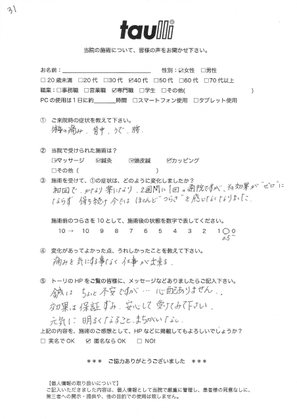 31
tauili
当院の施術について、皆様の声をお聞かせ下さい。
お名前: 性別: ☑女性 □男性
□20歳未満 □20代 □30代 ☑40代 □50代 □60代 □70代以上
職業: □事務職 □営業職 ☑専門職 □学生 □その他( )
PCの使用は1日に約 時間 □スマートフォン使用 □タブレット使用
① ご来院時の症状を教えて下さい。
痛み、背中、うで、腰
② 当院で受けられた施術は?
☑マッサージ ☑鍼灸 ☑カッピング
□その他( )
③ 施術を受けて、①の症状は、どのように変化しましたか?
初回で、かなり楽になり、2週間に1回の通院ですが、効果が"ゼロ"に
ならず 得られ 今では ほとんど"つらさ"を感じなくなりました。
施術前のつらさを10として、施術後の状態を数字で表してください。
10 → 10 9 8 7 6 5 4 3 2 1 0
0.5
④ 変化があってよかった点、うれしかったことを教えて下さい。
痛みを気にする事なく仕事が出来る。
⑤ トーリのHPをご覧の皆様に、メッセージなどありましたらご記入下さい。
鍼は ちょっと不安ですが… 心配ありません。
効果は保証ずみ。安心して受けてみて下さい。
元気に 明るくなること、まちがいなし。
上記の内容を、施術のご感想として、HPなどに掲載してもよろしいでしょうか?
□ 実名でOK ☑ 匿名ならOK □ NO!
*** ご協力ありがとうございました ***
【個人情報の取り扱いについて】
ご記入いただきました内容は、個人情報として当院で厳重に管理し、患者様の同意なしに、
第三者への開示・提供や、他の目的での使用は致しません。